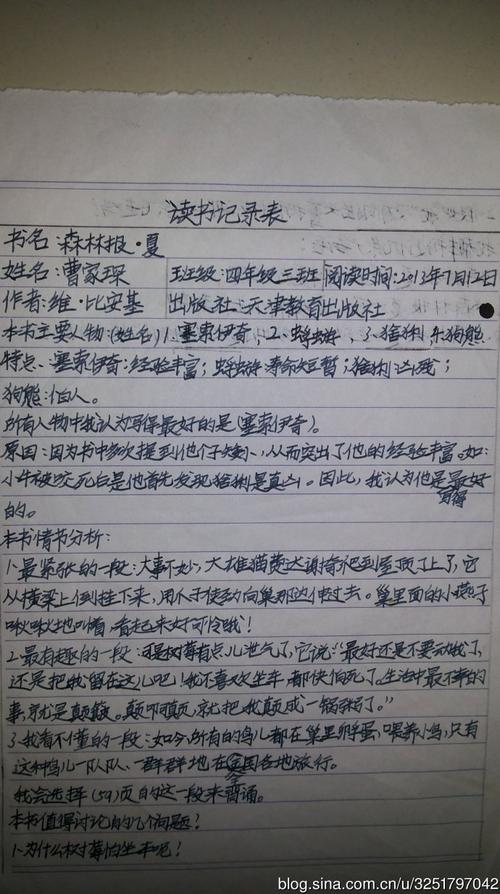 读书记录表
书名:森林报·夏
姓名:曹家琛 班级:四年级三班 阅读时间:2013年7月12日
作者:维·比安基 出版社:天津教育出版社
本书主要人物:(姓名)1.塞索伊奇,2.蜉蝣,3.猞猁 4.狗熊
特点:塞索伊奇:经验丰富;蜉蝣寿命短暂;猞猁凶残;
狗熊:怕人。
所有人物中我认为写得最好的是(塞索伊奇)。
原因:因为书中多次提到他个子矮小,从而突出了他的经验丰富。如:
小牛被咬死后是他首先发现猞猁是真凶。因此,我认为他是写得最好
的。
本书情节分析:
1.最紧张的一段:大事不妙,大雄猫费达谢奇爬到屋顶上了,它
从横梁上倒挂下来,用爪子使劲向巢那边伸过去。巢里面的小燕子
啾啾地叫着,看起来好可怜哦!
2.最有趣的一段:可是树莓有点儿泄气了,它说:"最好还是不要动我了,
还是把我留在这儿吧!我不喜欢坐车,都快怕死了。生活中最不幸的
事,就是颠簸。颠啊颠,就把我颠成一锅粥了。"
3.我看不懂的一段:如今,所有的鸟儿都在巢里孵蛋,喂养小鸟,只有
这种鸟儿一队队、一群群地在全国各地旅行。
我会选择(59)页的这一段来背诵。
本书值得讨论的几个问题!
1.为什么树莓怕坐车呢!
blog.sina.com.cn/u/3251797042